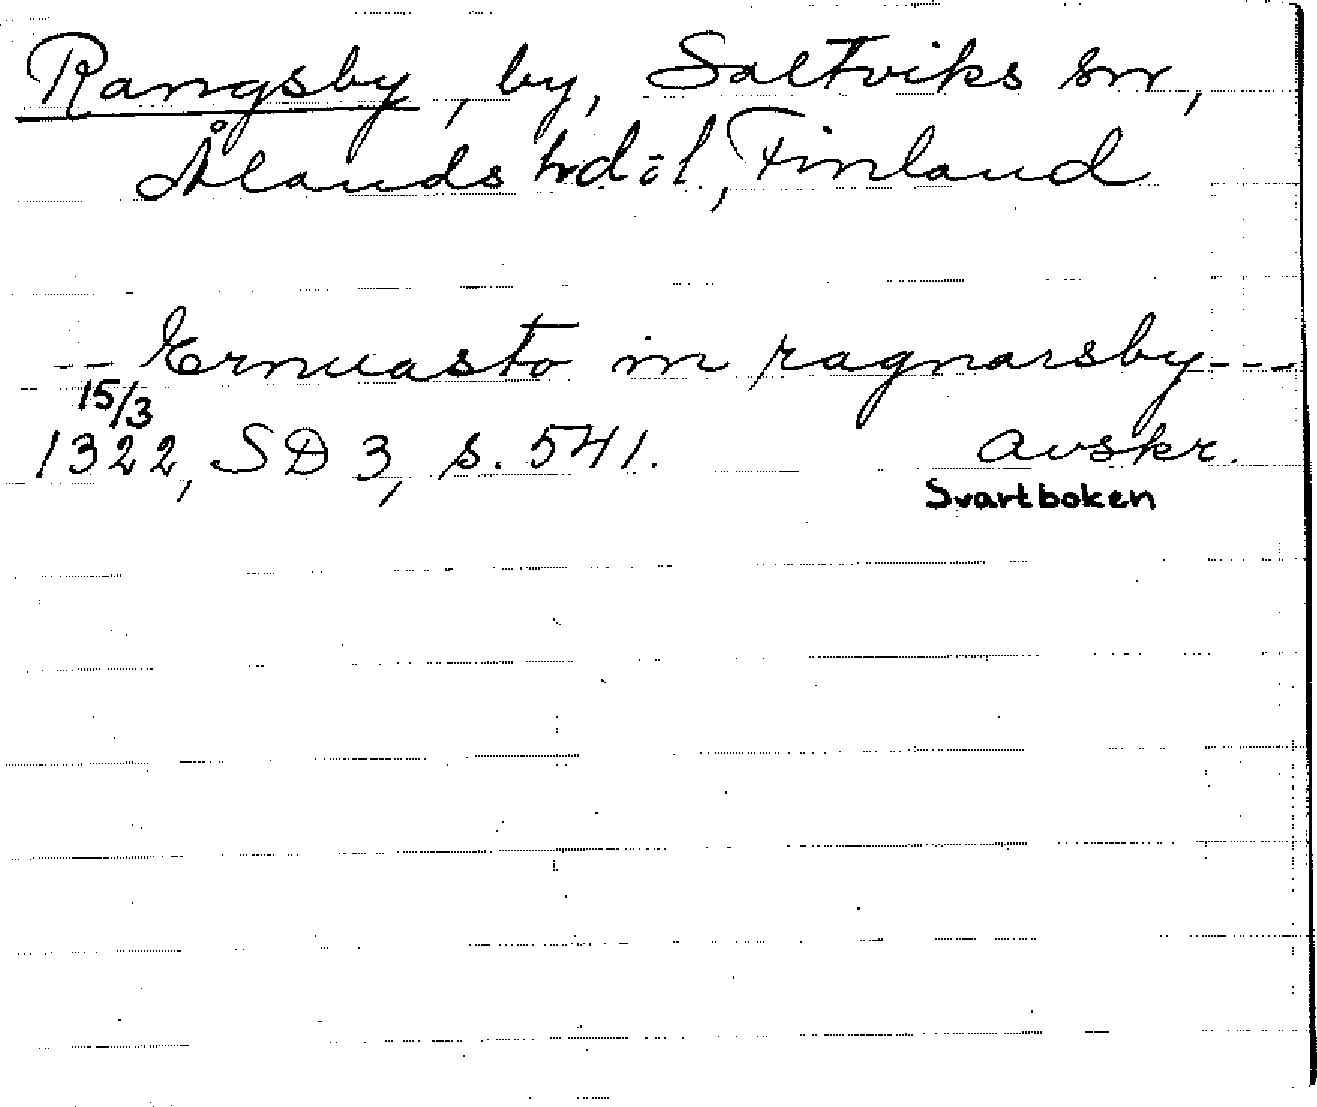 Rangsby, by, Saltviks sn,
Ålands hd o. l., Finland
-- Ernuasto in ragnarsby ---
15/3
1322, SD 3, s. 541. avskr.
Svartboken